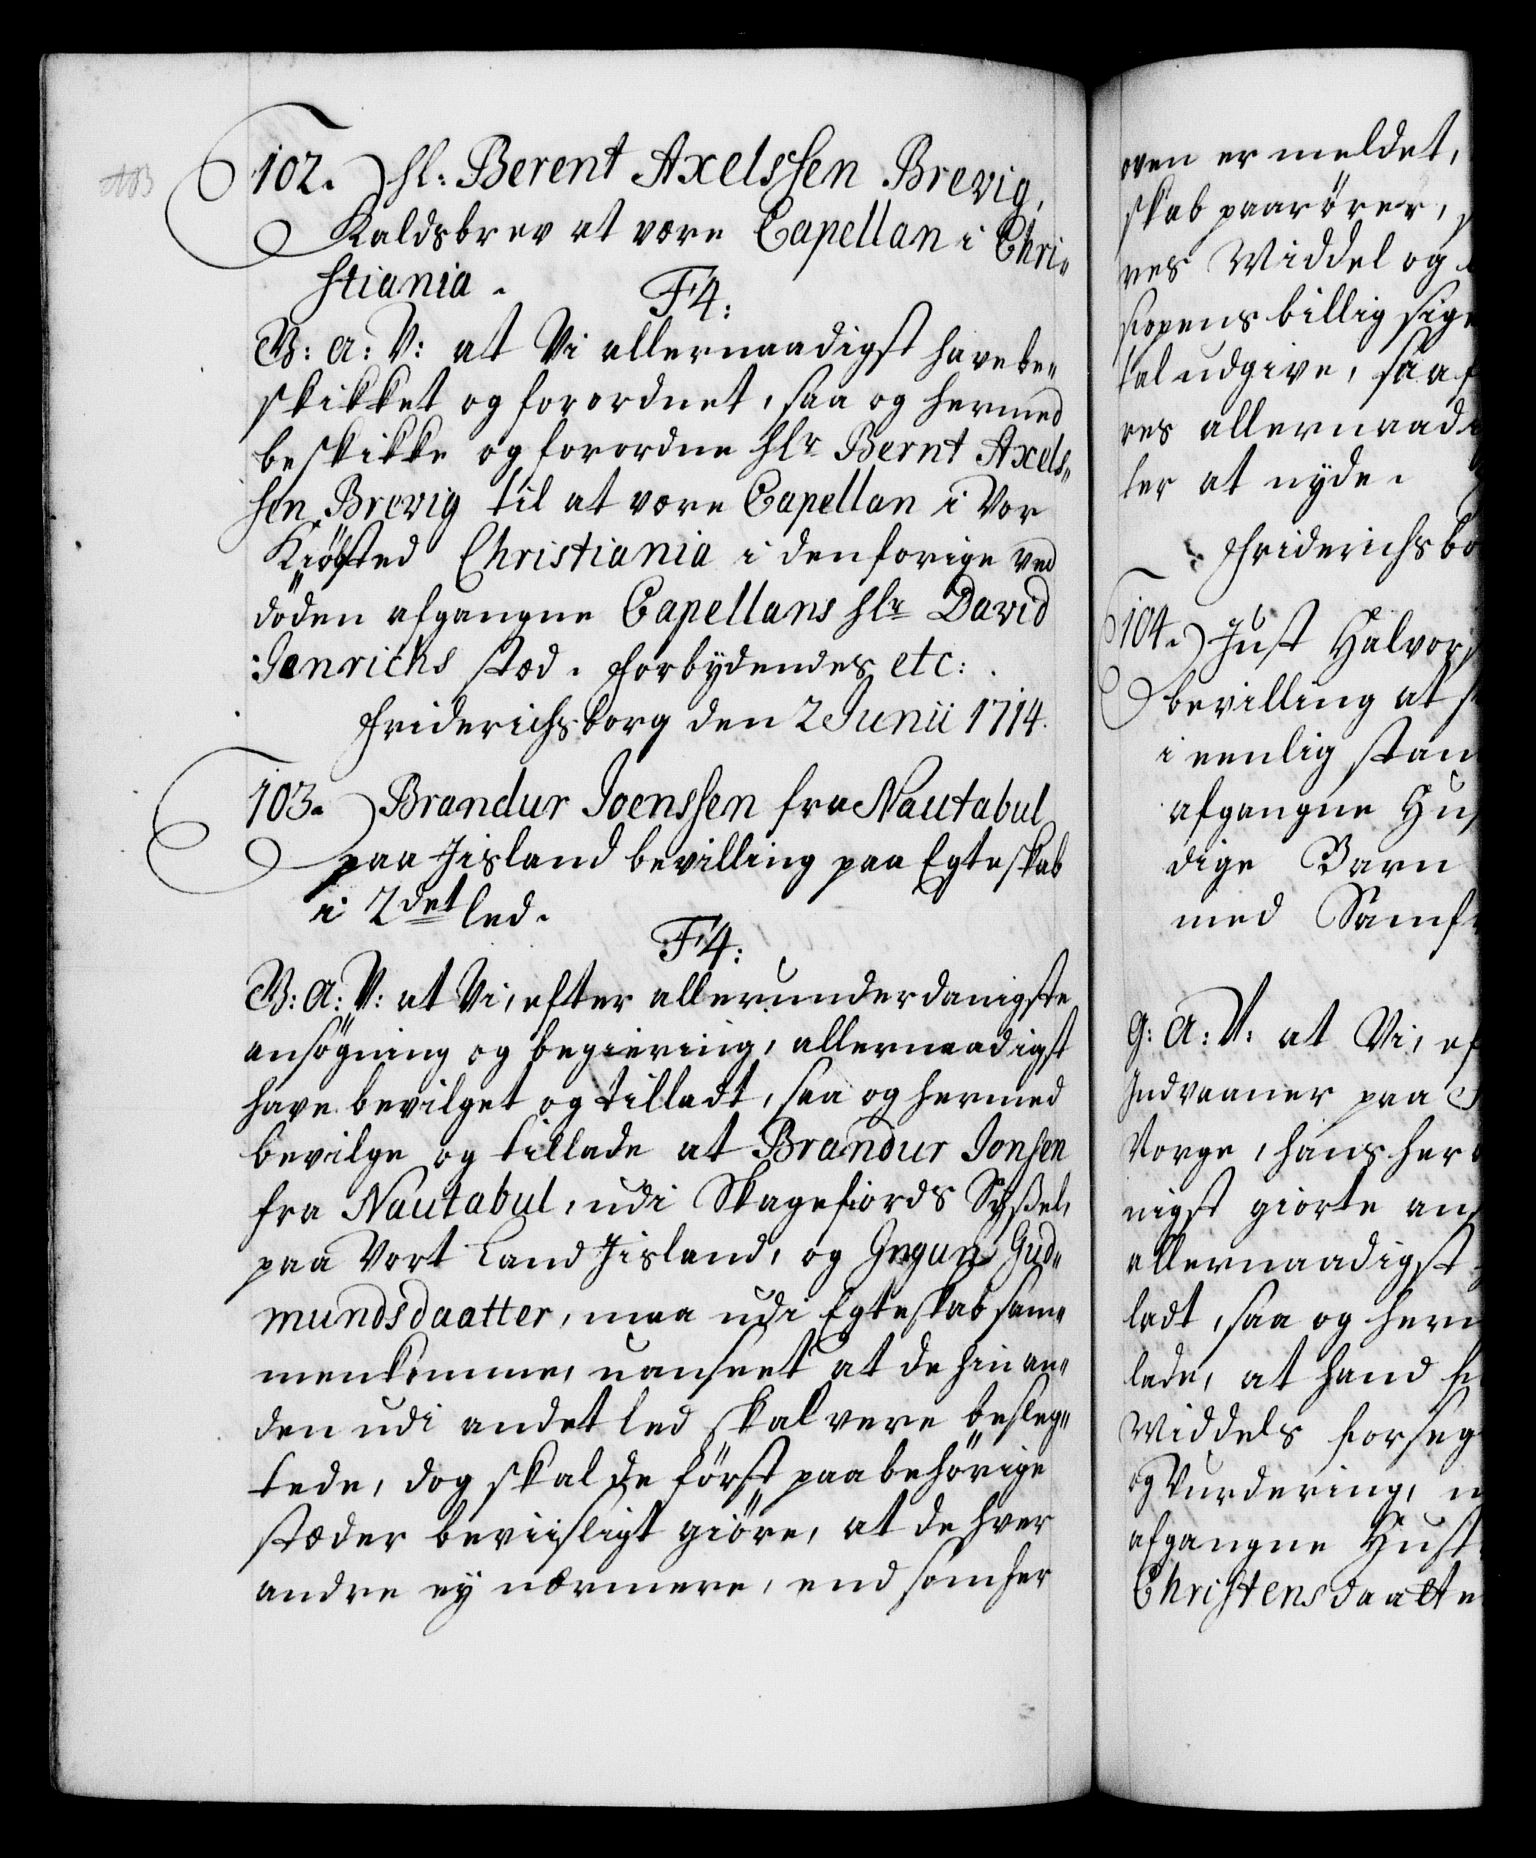 102. Hl: Berent Axelssen Brevig,
Kaldsbrev at være Capellan i Chri=
stiania.
F4:
G: A: V: at Vi allernaadigst have be=
skikket og forordnet, saa og hermed
beskikke og forordne Hlr Bernt Axels=
sen Brevig til at være Capellan i Vor
Kiöbsted Christiania i den forige ved
döden afgangne Capellans Hlr David
Jenrichs stæd. Forbydendes etc:
Friderichsborg den 2 Junii 1714.
103. Brandur Joenssen fra Nautabul
paa Iisland bevilling paa Egteskab
i 2det led.
F4:
G: A: V: at Vi, efter allerunderdanigste
ansögning og begiering, allernaadigst
have bevilget og tilladt, saa og hermed
bevilge og tillade at Brandur Jonsen
fra Nautabul, udi Skagefiords Syssel,
paa Vort Land Iisland, og Ingun Gud=
mundsdaatter, maa udi Egteskab sam=
menkomme, uanseet at de hinan=
den udi andet led skal være besleg=
tede, dog skal de först paa behörige
stæder beviisligt giöre, at de hver
andre ey nærmere, end som her
oven er meldet,
skab paarörer,
res Middel og
skopens billig sige
tal udgive, saa f
res allernaad
ler at nyde.
Friderichsbo
104. Just Halvors
bevilling at
i eenlig stan
afgangne Hus
dige Barn
med Samf
G: A: V: at Vi, ef
Indvaaner paa
Norge, hans her
nigst giorte an
allernaadigst
ladt, saa og herm
lade, at hand
Middels forseg
og Vurdering,
afgangne Hust
Christensdaatte